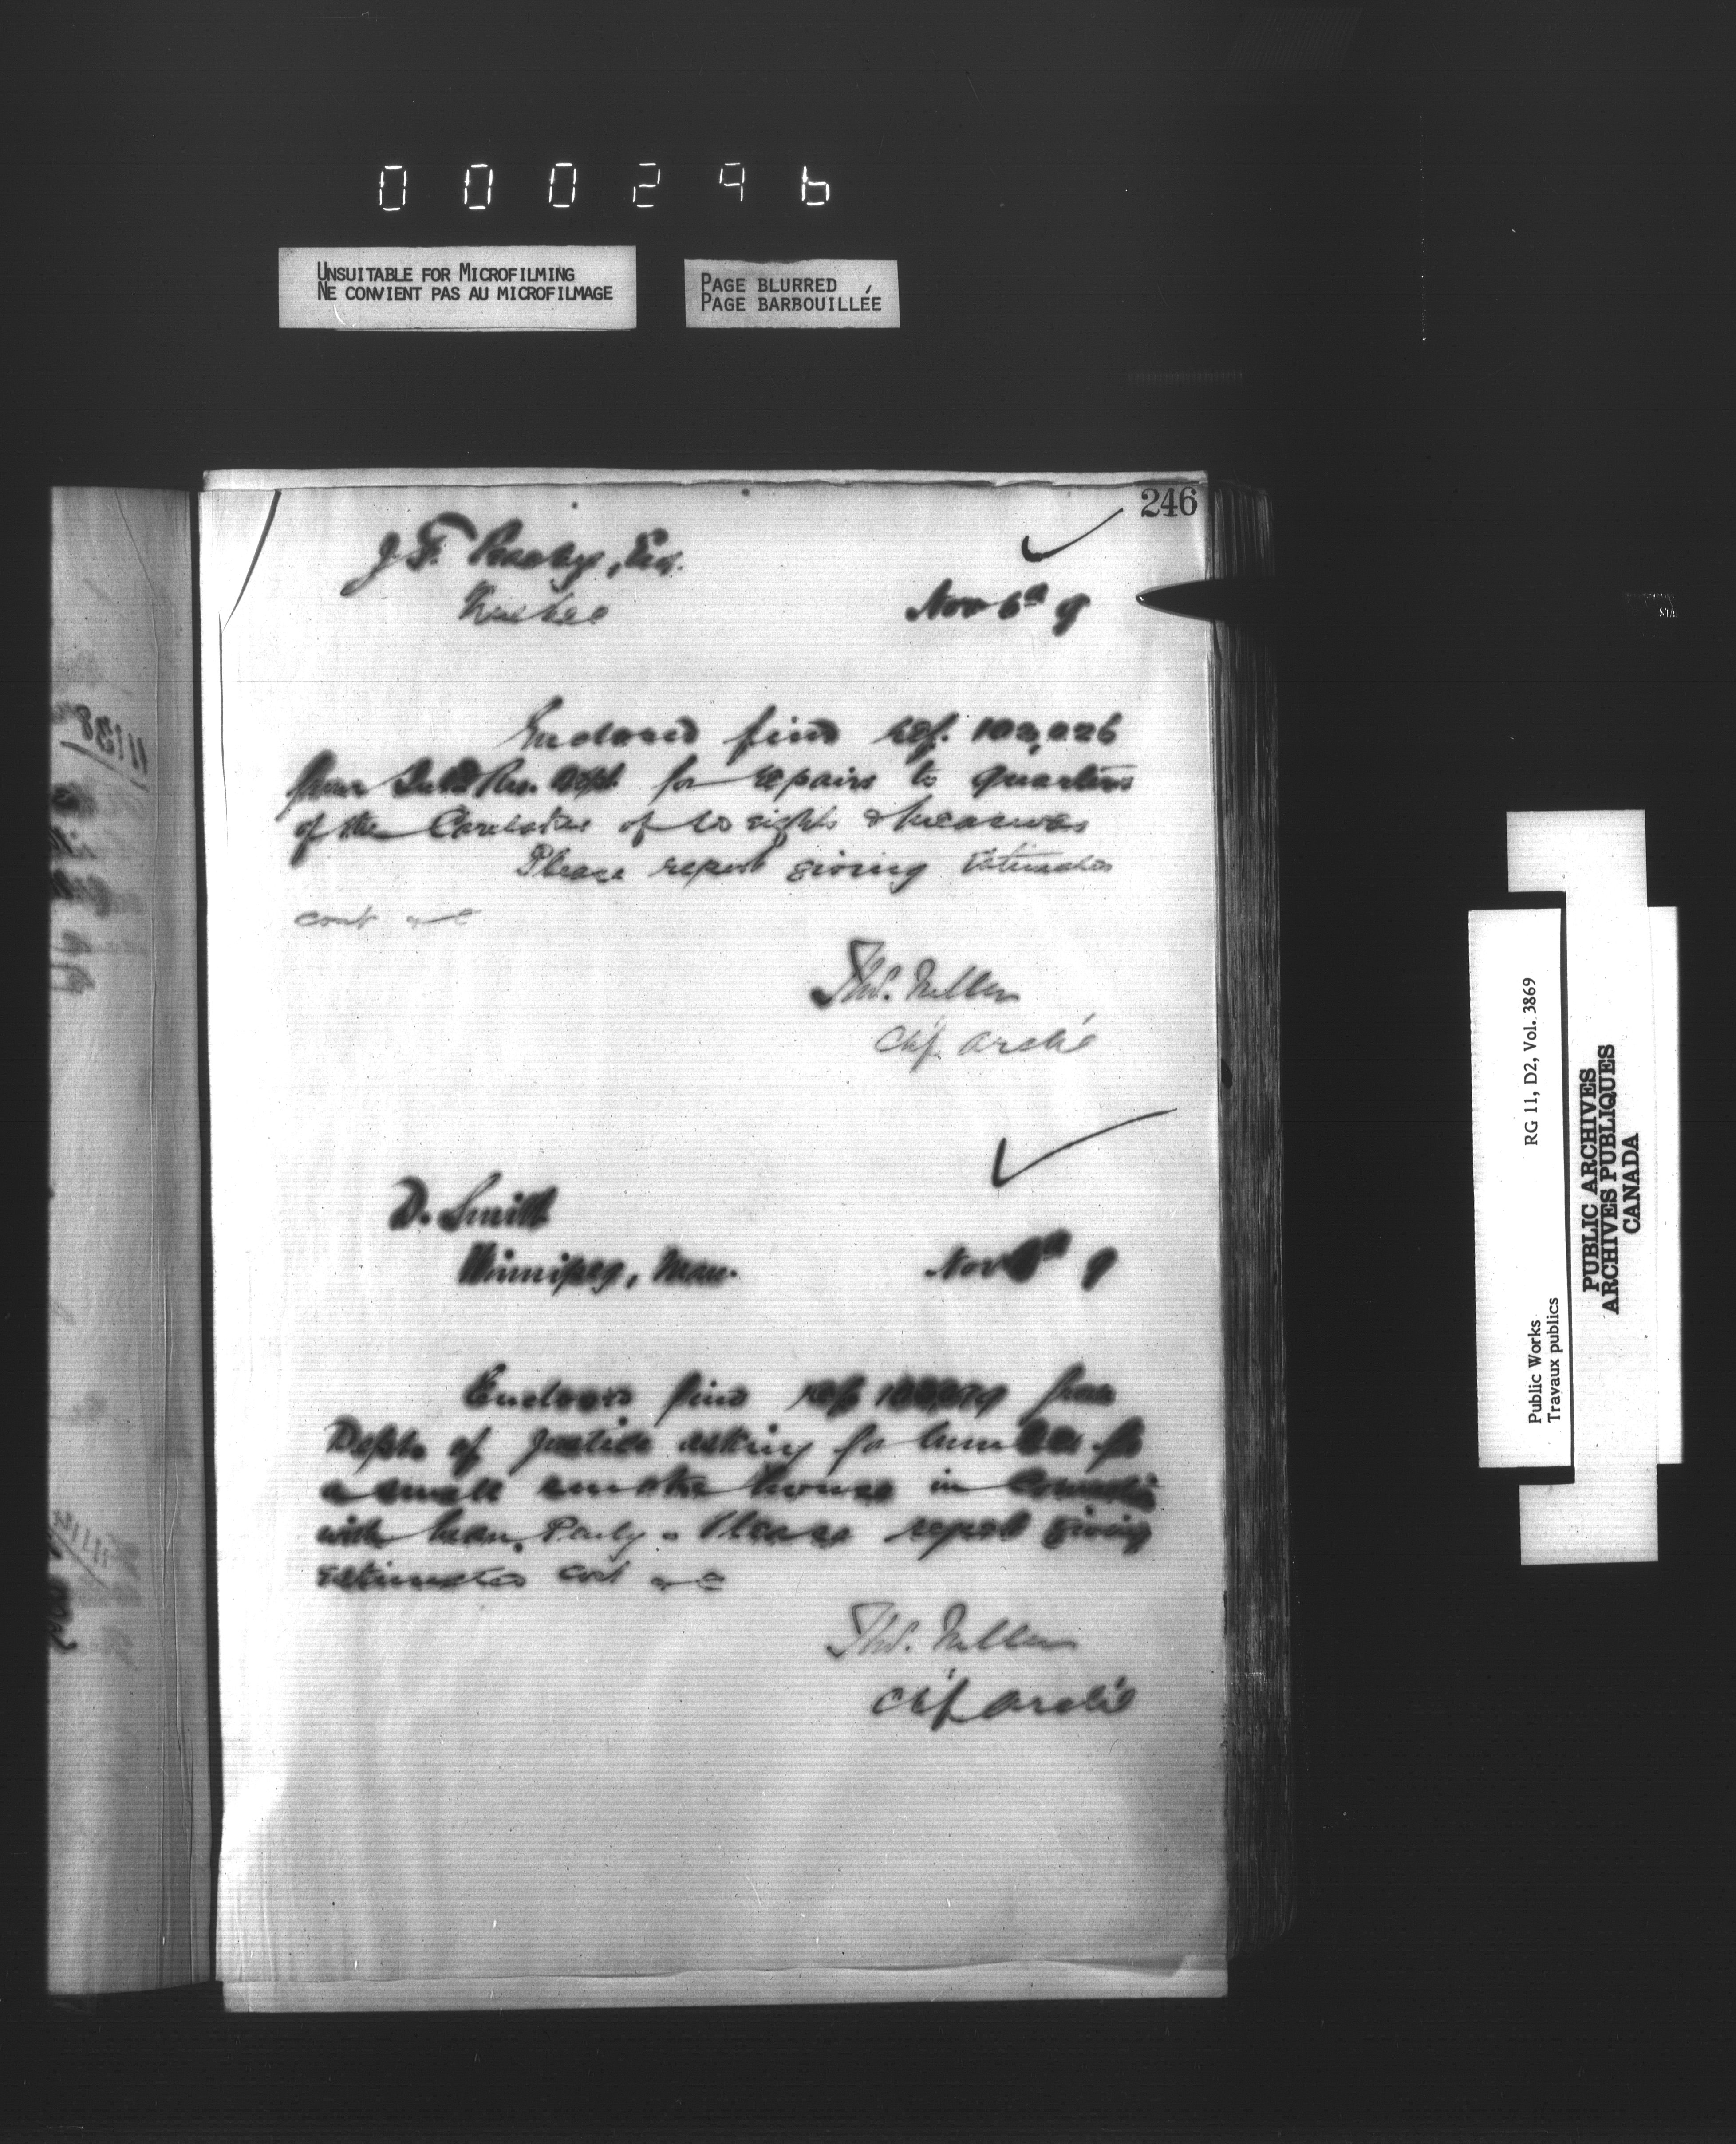 000296
UNSUITABLE FOR MICROFILMING
NE CONVIENT PAS AU MICROFILMAGE
PAGE BLURRED
PAGE BARBOUILLÉE
246
J F. Esq.
Nov 6th 9
Enclosed find ref. 102,026
from Inld Rev. Dept. for repairs to quarters
of the Caretaker of Weights & measures
Please report giving Estimated
cost &c
Thos. Fuller
Chf. Archt
D. Smith
Winnipeg, Man.
Nov 9
Enclosed find ref from
Dept. of Justice asking for lumber for
a small smoke house in connection
with Man. Peny. Please report giving
estimated cost &c
Thos. Fuller
Chf Archt
Public Works
Travaux publics
RG 11, D2, Vol. 3869
PUBLIC ARCHIVES
ARCHIVES PUBLIQUES
CANADA